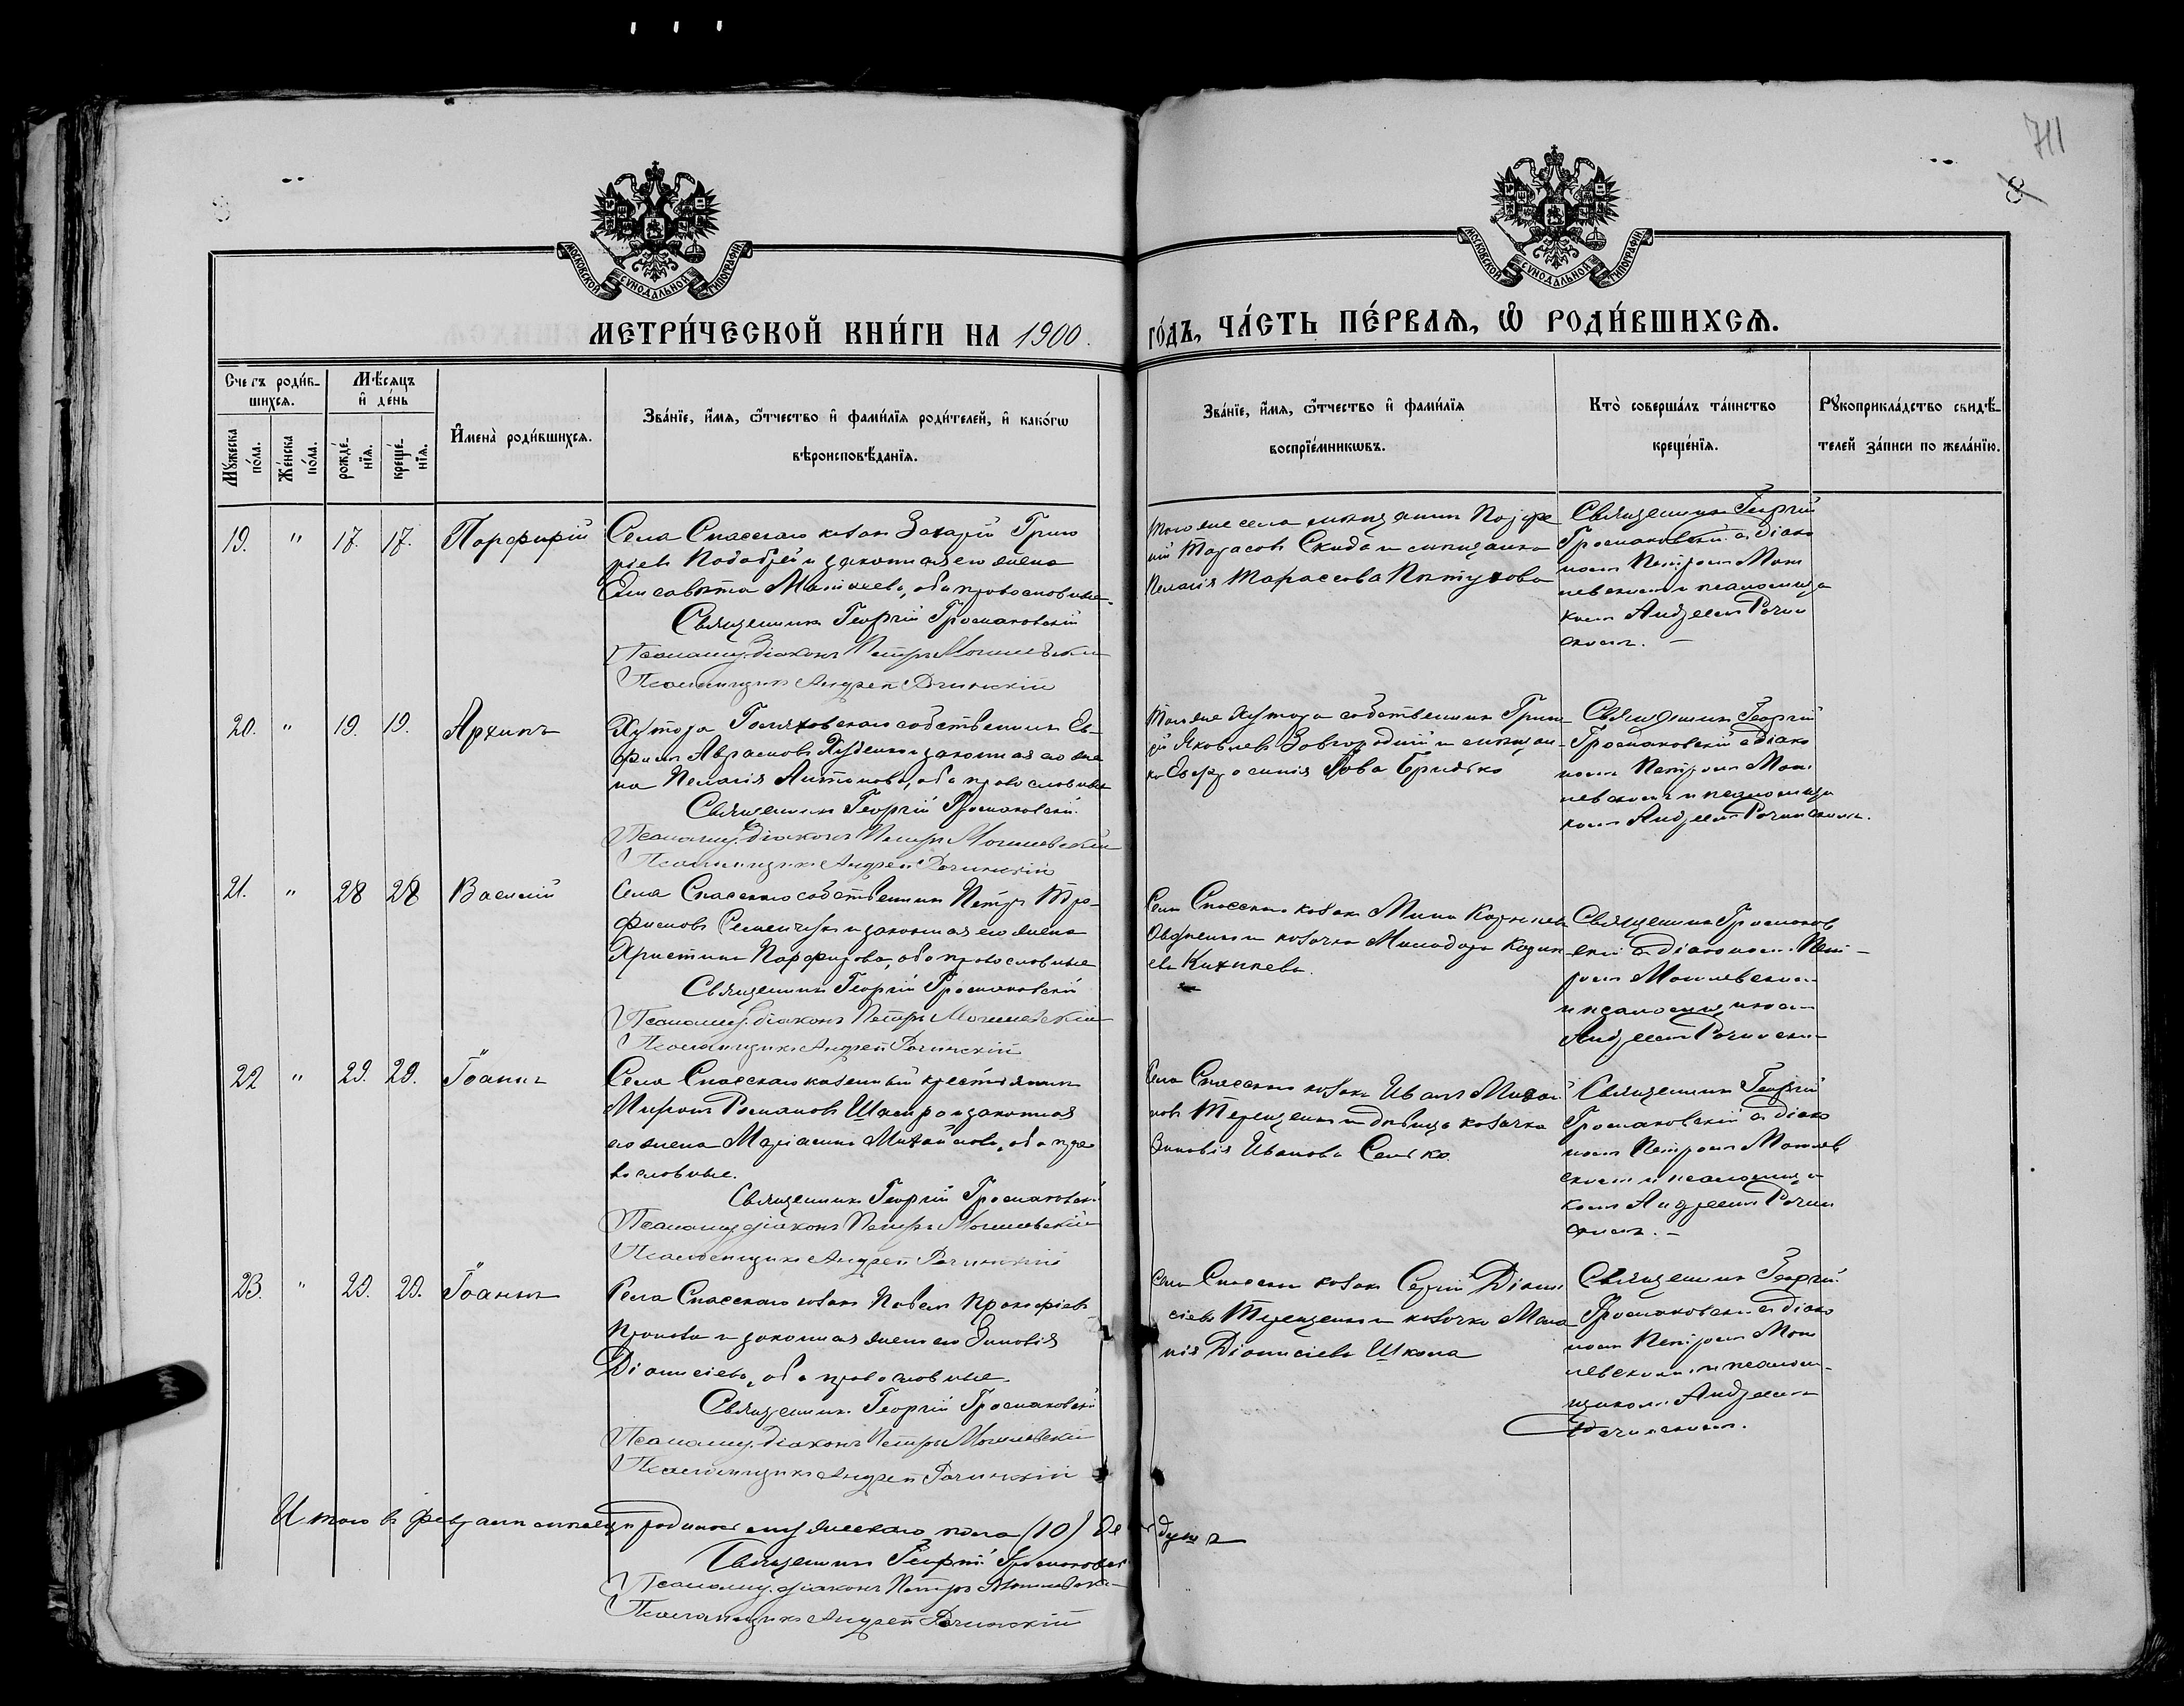 711
8
МОСКОВСКОЙ СѴНОДАЛЬНОЙ ТИПОГРАФІИ
МОСКОВСКОЙ СѴНОДАЛЬНОЙ ТИПОГРАФІИ
МЕТРИ́ЧЕСКОЙ КНИ́ГИ НА 1900.
ГО́ДЪ, ЧА́СТЬ ПЕ́РВАѦ, Ѡ҆ РОДИ́ВШИХСѦ.
Сче́тъ роди́в-
шихсѧ.
Мꙋ́жеска
по́ла.
Же́нска
по́ла.
Мѣ́сѧцъ
и҆ де́нь
рожде́-
нїѧ.
креще́-
нїѧ.
И҆мена̀ роди́вшихсѧ.
Зва́нїе, и҆́мѧ, ѻ҆́тчество и҆ фами́лїѧ роди́телей, и҆ како́гѡ
вѣроисповѣ́данїѧ.
Зва́нїе, и҆́мѧ, ѻ҆́тчество и҆ фами́лїѧ
воспрїе́мникѡвъ.
Кто̀ соверша́лъ та́инство
креще́нїѧ.
Рꙋкоприкла́дство свидѣ́-
телей за́писи по жела́нїю.
19. " 17. 17. Порфирій
Села Спасскаго козак Захарій Григо
ріевъ и законная его жена
Елисавета Матѳеева, оба православные.
Священникъ Георгій Громаковскій
Псаломщ. діаконъ Петръ Могилевскій
Псаломщикъ Андрей Рачинскій
Того же села мещанин
Тарасовъ Скида и мещанка
Пелагія Тарасова Петухова
Священникъ Георгій
Громаковскій съ діако
номъ Петромъ Моги
левскимъ и псаломщи
комъ Андреемъ Рачин
скимъ. —
20. " 19. 19. Архипъ
Хутора собственникъ Ев-
фимъ Аврамовъ и законная его же
на Пелагія Антонова, оба православные
Священникъ Георгій Громаковскій
Псаломщ. діаконъ Петръ Могилевскій
Псаломщикъ Андрей Рачинскій
Того же Хутора собственникъ Григо-
рій Яковлевъ Завгородній и мещан-
ка Евфросинія
Священникъ Георгій
Громаковскій съ діако
номъ Петромъ Моги
левскимъ и псаломщи
комъ Андреемъ Рачинскимъ.
21. " 28 28 Василій
Села Спасскаго собственникъ Петръ Тро-
фимовъ и законная его жена
Христина Порфирова, оба православные
Священникъ Георгій Громаковскій
Псаломщ. діаконъ Петръ Могилевскій
Псаломщикъ Андрей Рачинскій
Села Спасскаго козакъ
и козачка
Священникъ Громаков
скій съ діакономъ Пет-
ромъ Могилевскимъ
и псаломщикомъ
Андреемъ Рачинским
22 " 29. 29. Іоаннъ
Села Спасскаго казенный крестьянинъ
Миронъ Романовъ и законная
его жена Маріамна Михайлова, оба пра
вославные.
Священникъ Георгій Громаковскій
Псаломщ. діаконъ Петръ Могилевскій
Псаломщикъ Андрей Рачинскій
Села Спасскаго козакъ Иванъ Михай
ловъ Терещенко и девица козачка
Зиновія Иванова
Священникъ Георгій
Громаковскій съ діако
номъ Петромъ Могилев
скимъ и псаломщи
комъ Андреемъ Рачин
скимъ. —
23. " 29. 29. Іоаннъ
Села Спасскаго козакъ Павелъ Прокофіевъ
и законная жена его Зиновія
Діонисіева, оба православные.
Священникъ Георгій Громаковскій
Псаломщ. діаконъ Петръ Могилевскій
Псаломщикъ Андрей Рачинскій
Села Спасскаго козакъ Сергій Діони
сіевъ Терещенко и козачка Мела
нія Діонисіева Школа
Священникъ Георгій
Громаковскій съ діако
номъ Петромъ Моги
левскимъ и псалом-
щикомъ Андреемъ
Рачинскимъ.
Итого въ феврале месяце родилось мужескаго пола (10) душъ
Священникъ Георгій Громаковскій
Псаломщ. діаконъ Петръ Могилевскій
Псаломщикъ Андрей Рачинскій